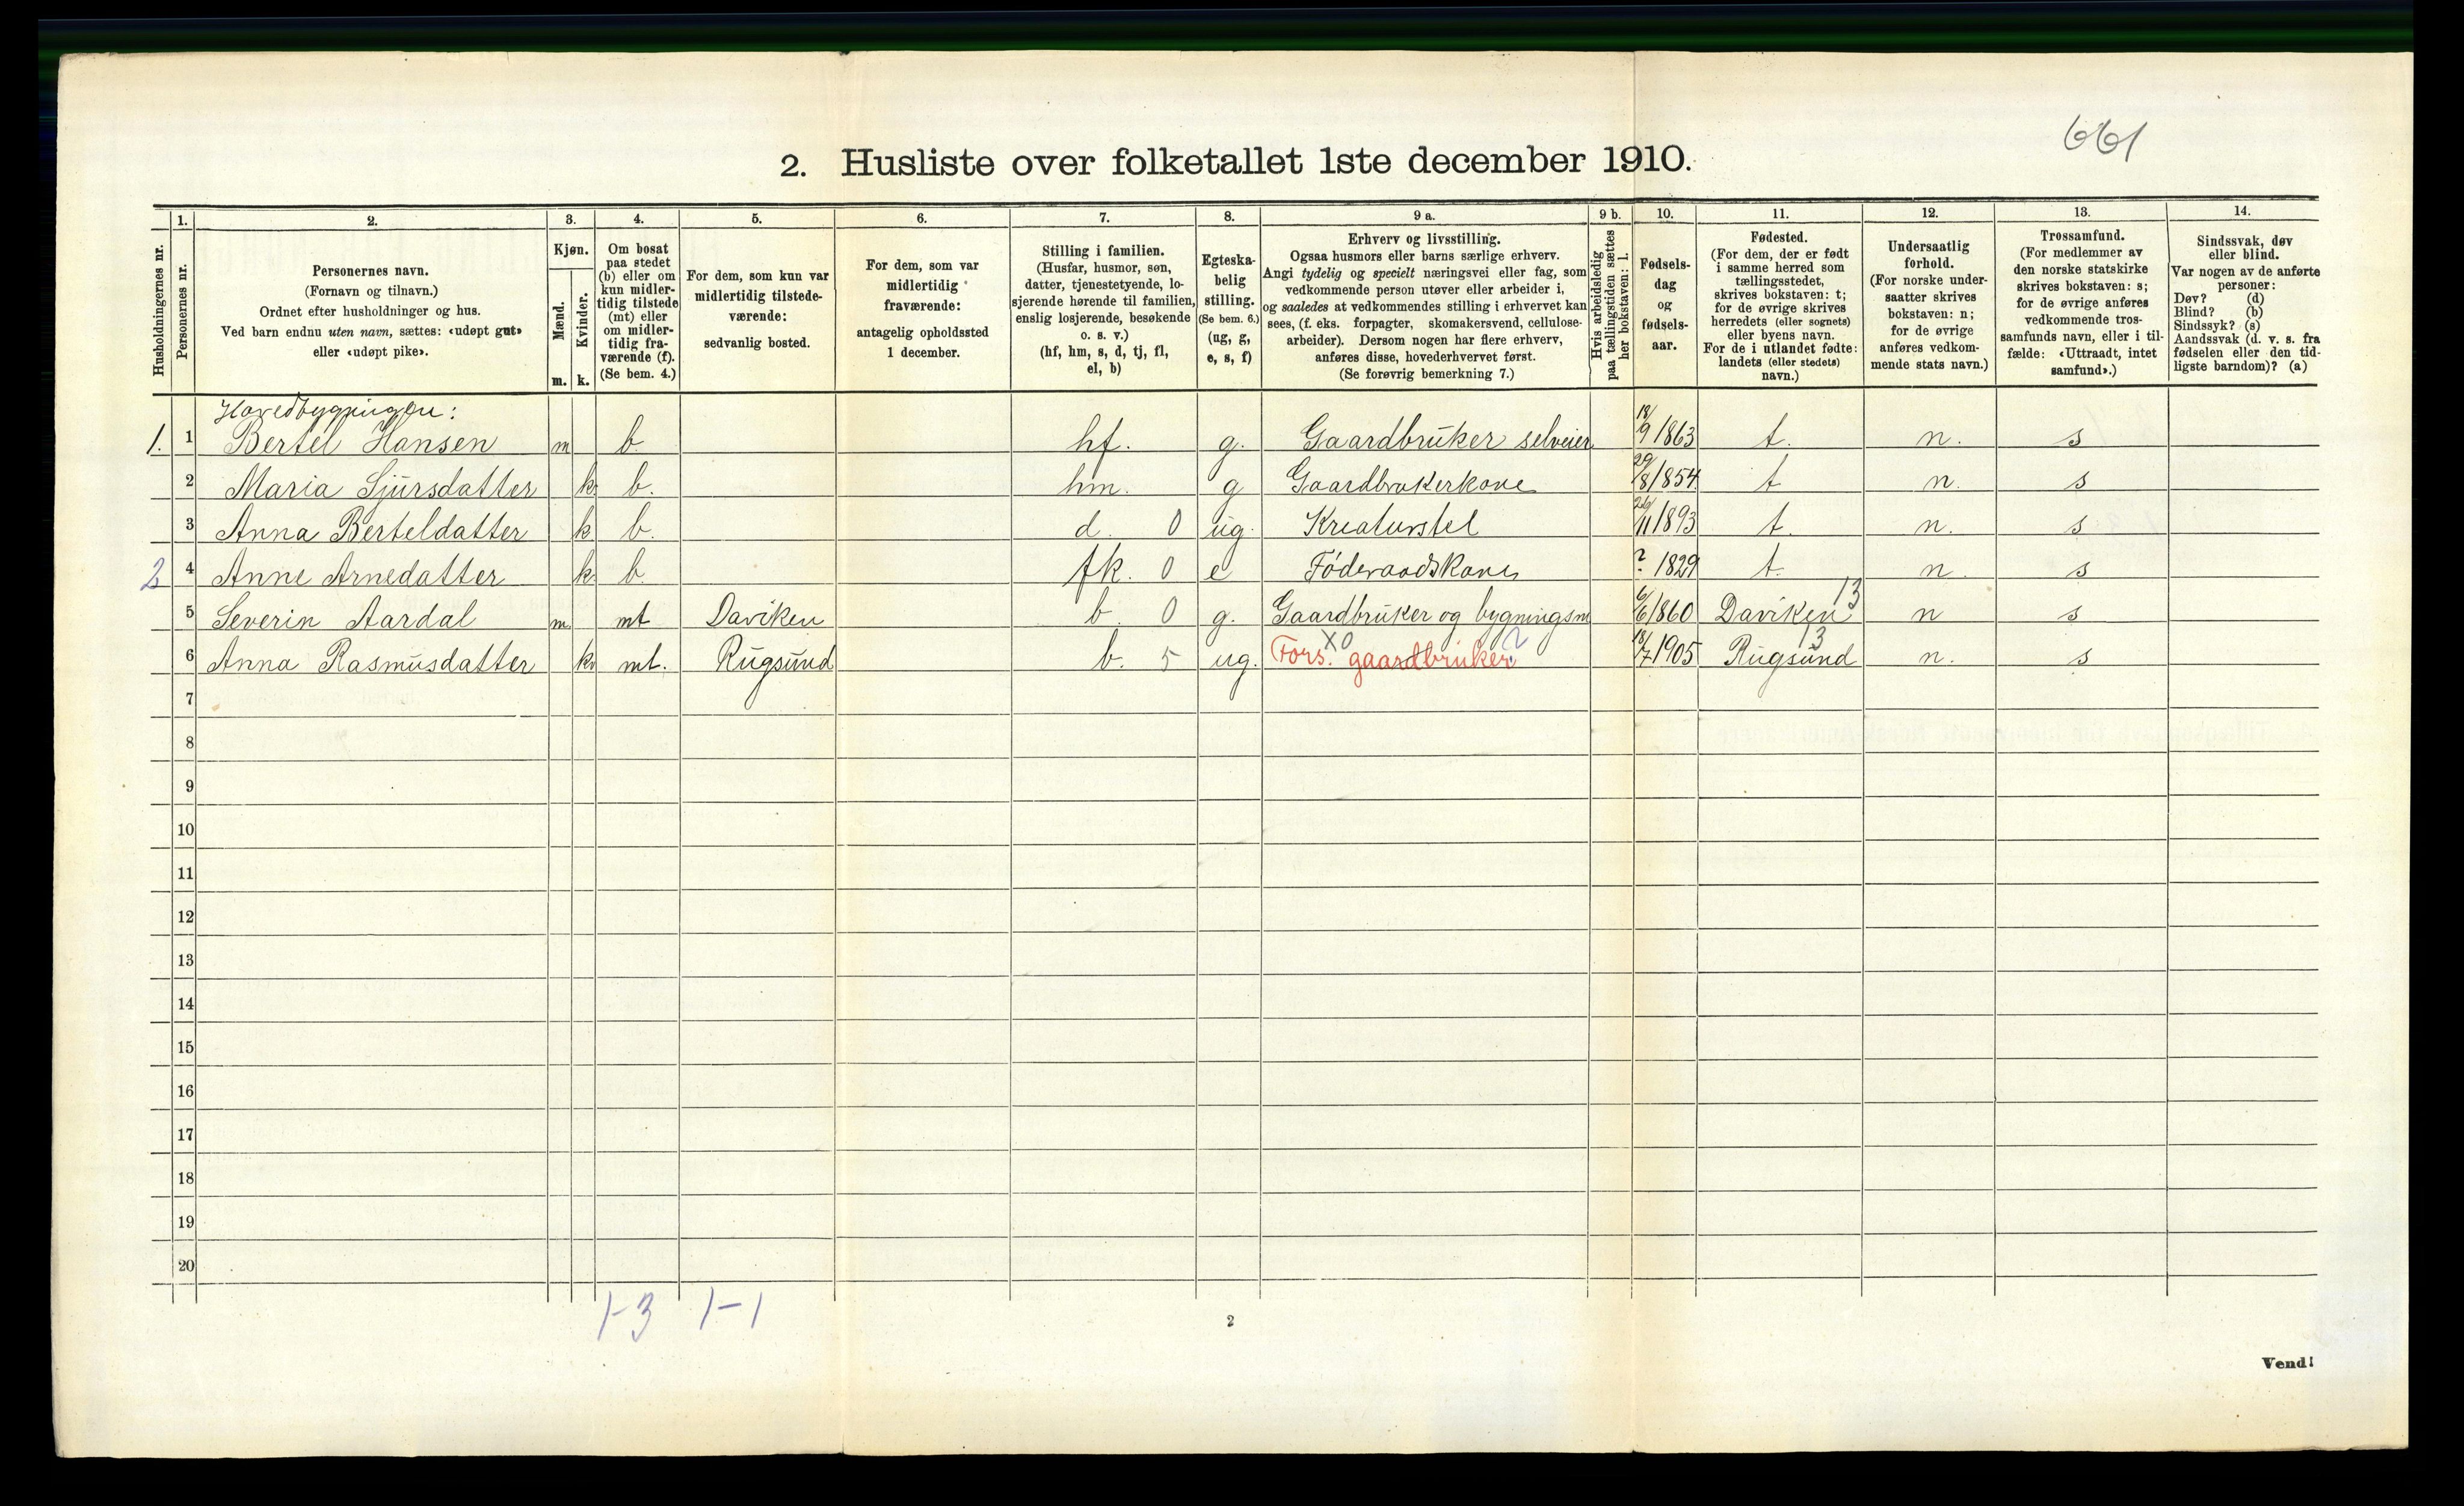 661
2. Husliste over folketallet 1ste december 1910.
Husholdningernes nr.
1. Personernes nr.
2. Personernes navn.
(Fornavn og tilnavn.)
Ordnet efter husholdninger og hus.
Ved barn endnu uten navn, sættes: «udøpt gut»
eller «udøpt pike».
3. Kjøn.
Mænd. m.
Kvinder. k.
4. Om bosat
paa stedet
(b) eller om
kun midler-
tidig tilstede
(mt) eller
om midler-
tidig fra-
værende (f).
(Se bem. 4.)
5. For dem, som kun var
midlertidig tilstede-
værende:
sedvanlig bosted.
6. For dem, som var
midlertidig
fraværende:
antagelig opholdssted
1 december.
7. Stilling i familien.
(Husfar, husmor, søn,
datter, tjenestetyende, lo-
sjerende hørende til familien,
enslig losjerende, besøkende
o. s. v.)
(hf, hm, s, d, tj, fl,
el, b)
8. Egteska-
belig
stilling.
(Se bem. 6.)
(ug, g,
e, s, f)
9 a. Erhverv og livsstilling.
Ogsaa husmors eller barns særlige erhverv.
Angi tydelig og specielt næringsvei eller fag, som
vedkommende person utøver eller arbeider i,
og saaledes at vedkommendes stilling i erhvervet kan
sees, (f. eks. forpagter, skomakersvend, cellulose-
arbeider). Dersom nogen har flere erhverv,
anføres disse, hovederhvervet først.
(Se forøvrig bemerkning 7.)
9 b. Hvis arbeidsledig
paa tællingstiden sættes
her bokstaven: l.
10. Fødsels-
dag
og
fødsels-
aar.
11. Fødested.
(For dem, der er født
i samme herred som
tællingsstedet,
skrives bokstaven: t;
for de øvrige skrives
herredets (eller sognets)
eller byens navn.
For de i utlandet fødte:
landets (eller stedets)
navn.)
12. Undersaatlig
forhold.
(For norske under-
saatter skrives
bokstaven: n;
for de øvrige
anføres vedkom-
mende stats navn.)
13. Trossamfund.
(For medlemmer av
den norske statskirke
skrives bokstaven: s;
for de øvrige anføres
vedkommende tros-
samfunds navn, eller i til-
fælde: «Uttraadt, intet
samfund».)
14. Sindssvak, døv
eller blind.
Var nogen av de anførte
personer:
Døv? (d)
Blind? (b)
Sindssyk? (s)
Aandssvak (d. v. s. fra
fødselen eller den tid-
ligste barndom)? (a)
Hovedbygningen:
1. 1 Bertel Hansen m b. hf. g. Gaardbruker selveier 18/9 1863 t. n. s
2 Maria Sjursdatter k. b. hm. g Gaardbrukerkone 29/8 1854 t n. s
3 Anna Berteldatter k b. d. 0 ug. Kreaturstel 26/11 1893 t. n. s
2 4 Anne Arnedatter k. b. fk. 0 e Føderaadskone ? 1829 t. n. s
5 Severin Aardal m. mt Daviken b 0 g. Gaardbruker og bygningsm 6/6 1860 Daviken 13 n s
6 Anna Rasmusdatter k. mt. Rugsund b. 5 ug. Fors. X0 gaardbruker 2 18/7 1905 Rugsund 13 n. s
7
8
9
10
11
12
13
14
15
16
17
18
19
20
1-3 1-1
2
Vend!